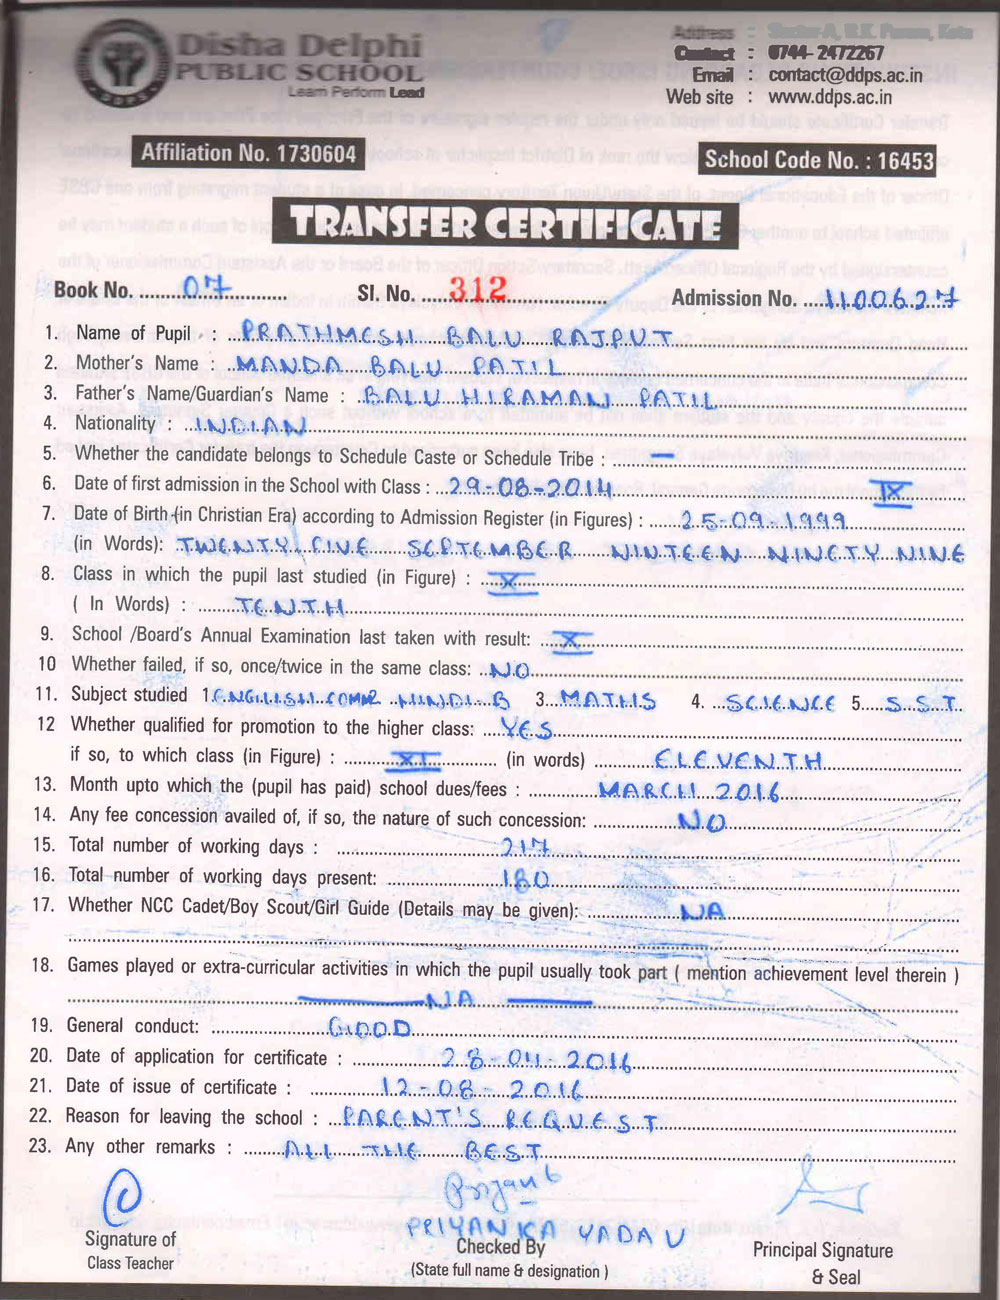 Disha Delphi
PUBLIC SCHOOL
Learn Perform Lead
DDPS
Address :
Contact : 0744- 2472267
Email : contact@ddps.ac.in
Web site : www.ddps.ac.in
Affiliation No. 1730604
School Code No. : 16453
TRANSFER CERTIFICATE
Book No. 07 Sl. No. 312 Admission No. 1100627
1. Name of Pupil : PRATHMESH BALU RAJPUT
2. Mother's Name : MANDA BALU PATIL
3. Father's Name/Guardian's Name : BALU HIRAMAN PATIL
4. Nationality : INDIAN
5. Whether the candidate belongs to Schedule Caste or Schedule Tribe : —
6. Date of first admission in the School with Class : 29-08-2014 IX
7. Date of Birth (in Christian Era) according to Admission Register (in Figures) : 25-09-1999
(in Words): TWENTY FIVE SEPTEMBER NINTEEN NINETY NINE
8. Class in which the pupil last studied (in Figure) : X
( In Words) : TENTH
9. School /Board's Annual Examination last taken with result: X
10 Whether failed, if so, once/twice in the same class: NO
11. Subject studied 1. ENGLISH COMM HINDI B 3. MATHS 4. SCIENCE 5. S.S.T.
12 Whether qualified for promotion to the higher class: YES
if so, to which class (in Figure) : XI (in words) ELEVENTH
13. Month upto which the (pupil has paid) school dues/fees : MARCH 2016
14. Any fee concession availed of, if so, the nature of such concession: NO
15. Total number of working days : 217
16. Total number of working days present: 180
17. Whether NCC Cadet/Boy Scout/Girl Guide (Details may be given): NA
18. Games played or extra-curricular activities in which the pupil usually took part ( mention achievement level therein )
— NA —
19. General conduct: GOOD
20. Date of application for certificate : 28-04-2016
21. Date of issue of certificate : 12-08-2016
22. Reason for leaving the school : PARENT'S REQUEST
23. Any other remarks : ALL THE BEST
PRIYANKA YADAV
Signature of
Class Teacher
Checked By
(State full name & designation )
Principal Signature
& Seal